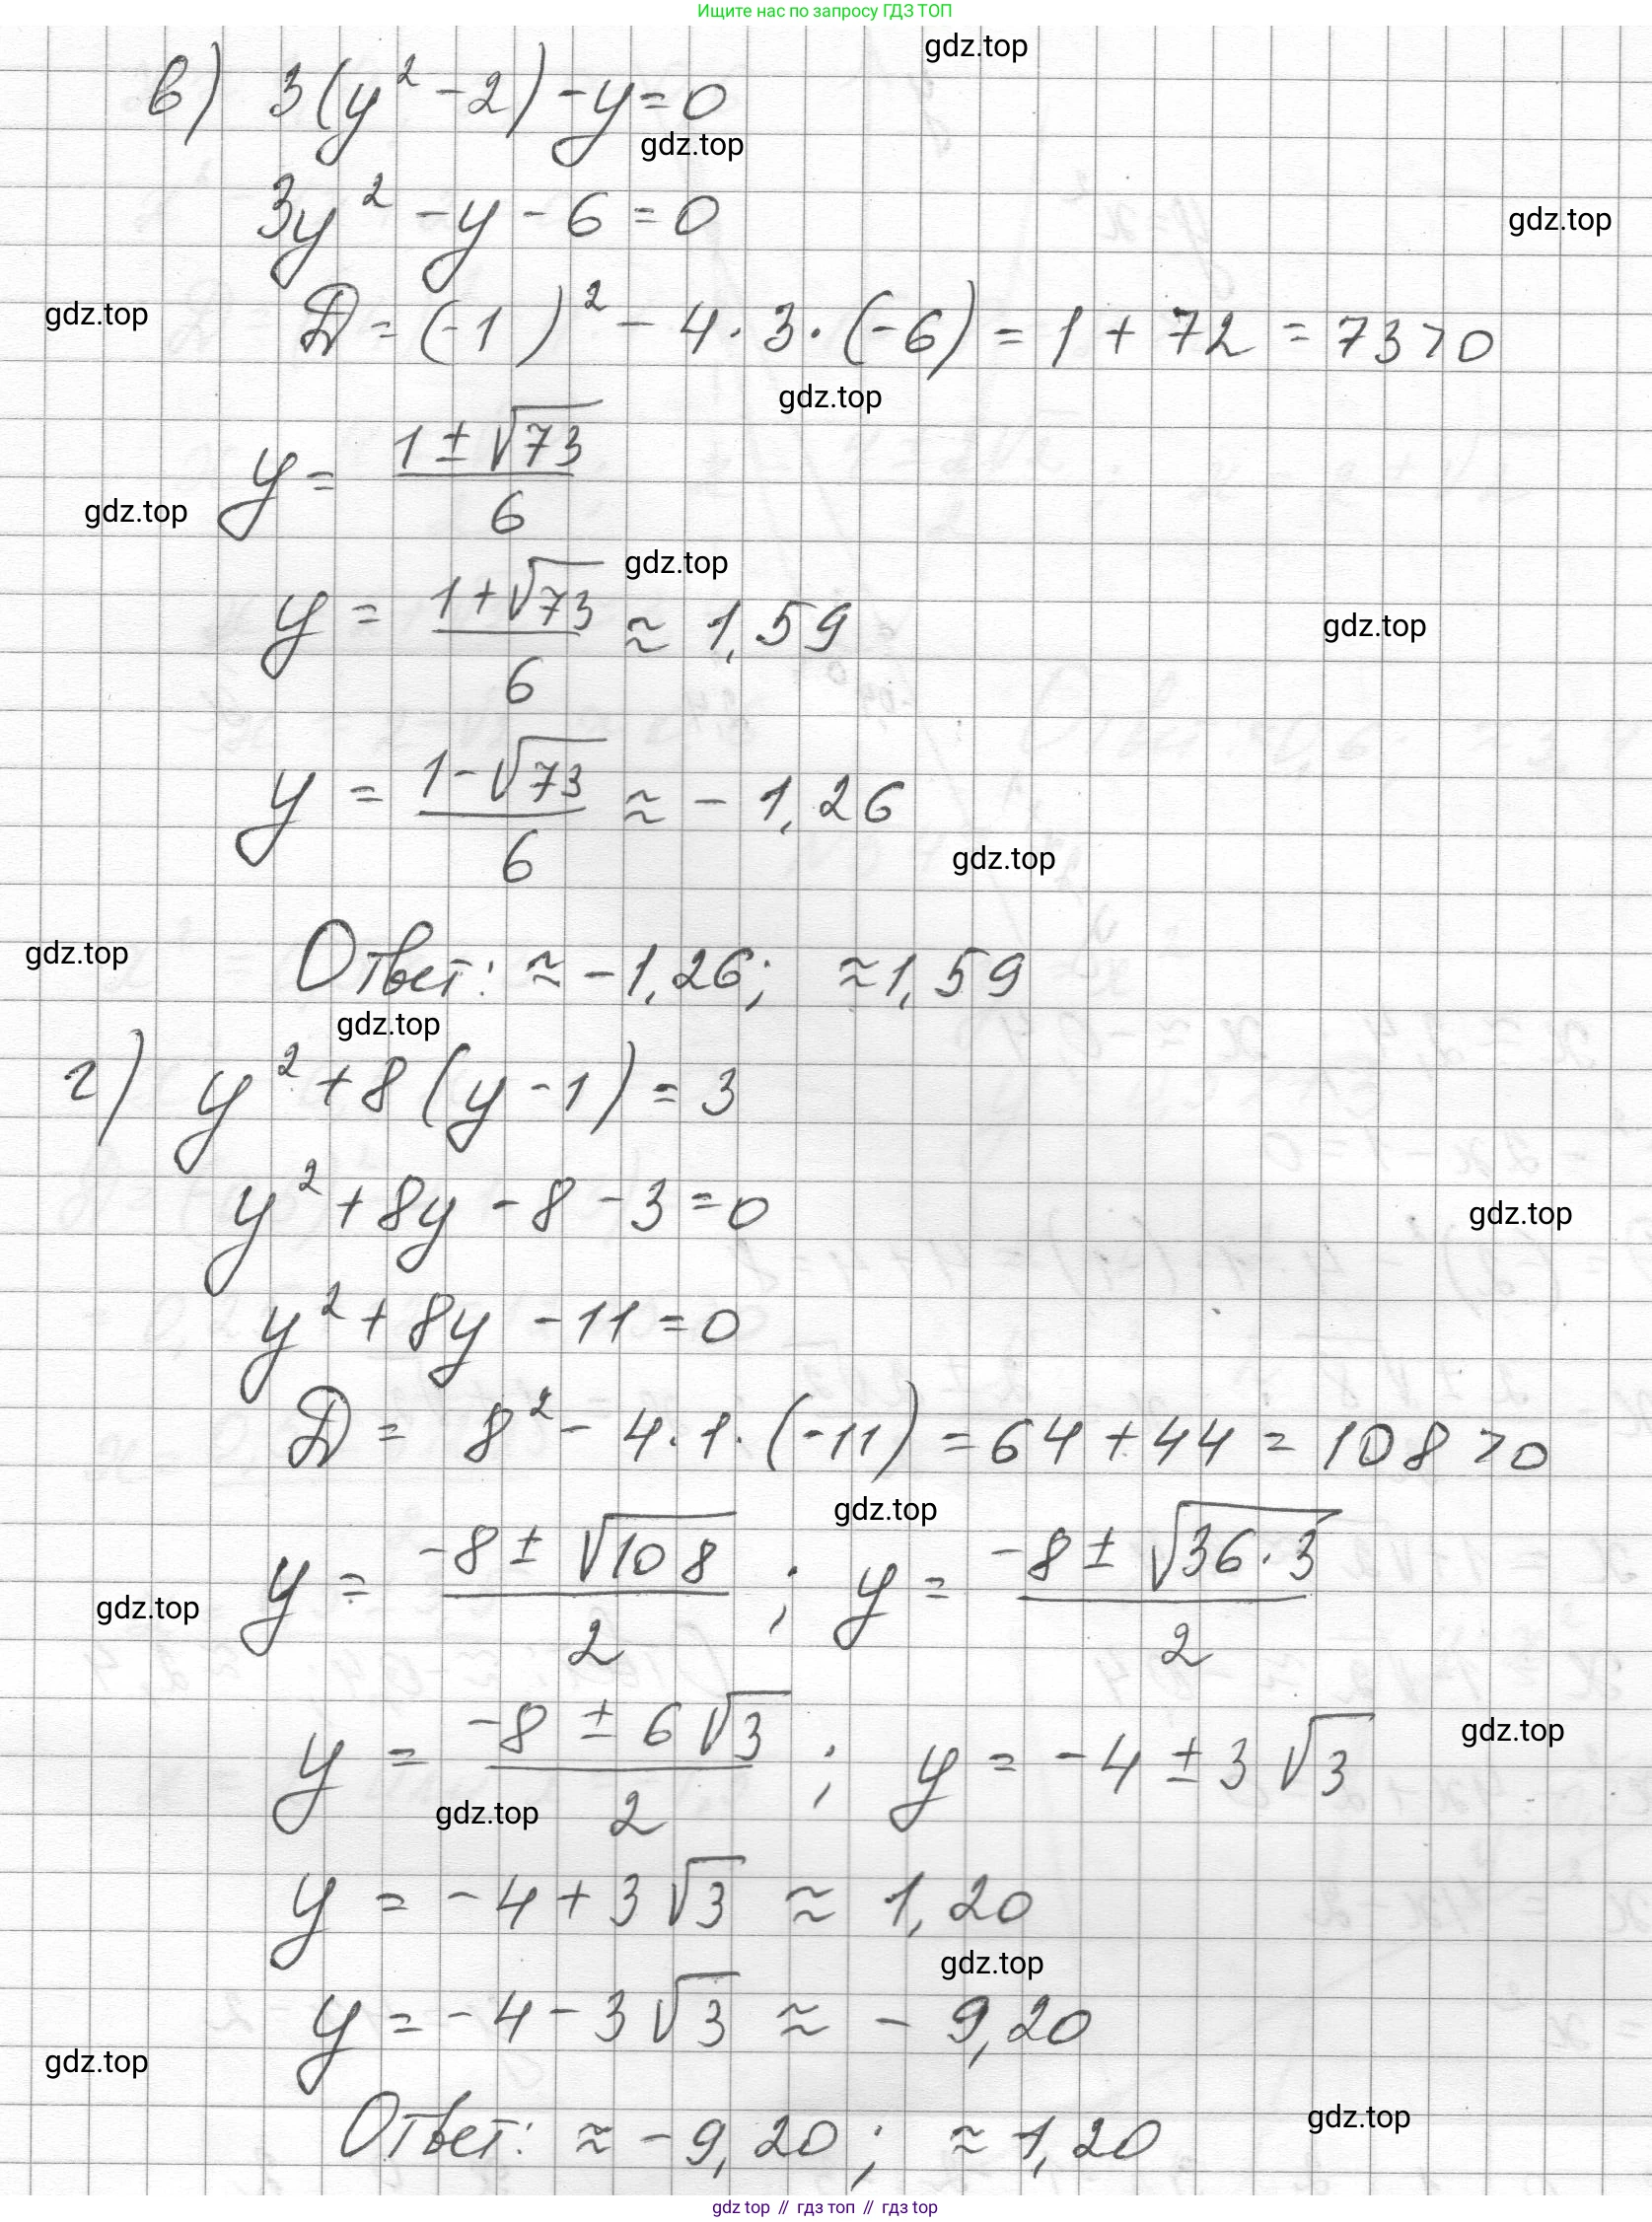 Ищите нас по запросу ГДЗ ТОП
gdz.top
в) 3(y² - 2) - y = 0
gdz.top
3y² - y - 6 = 0
gdz.top
gdz.top
D = (-1)² - 4 · 3 · (-6) = 1 + 72 = 73 > 0
gdz.top
y = (1 ± √73)/6
gdz.top
gdz.top
y = (1 + √73)/6 ≈ 1,59
gdz.top
y = (1 - √73)/6 ≈ - 1,26
gdz.top
gdz.top
Ответ: ≈ -1,26; ≈ 1,59
gdz.top
г) y² + 8(y - 1) = 3
y² + 8y - 8 - 3 = 0
gdz.top
y² + 8y - 11 = 0
D = 8² - 4 · 1 · (-11) = 64 + 44 = 108 > 0
gdz.top
y = (-8 ± √108)/2 ; y = (-8 ± √36·3)/2
gdz.top
y = (-8 ± 6√3)/2 ; y = -4 ± 3√3
gdz.top
gdz.top
y = -4 + 3√3 ≈ 1,20
gdz.top
y = -4 - 3√3 ≈ - 9,20
gdz.top
Ответ: ≈ -9,20; ≈ 1,20
gdz.top
gdz top // гдз топ // гдз top